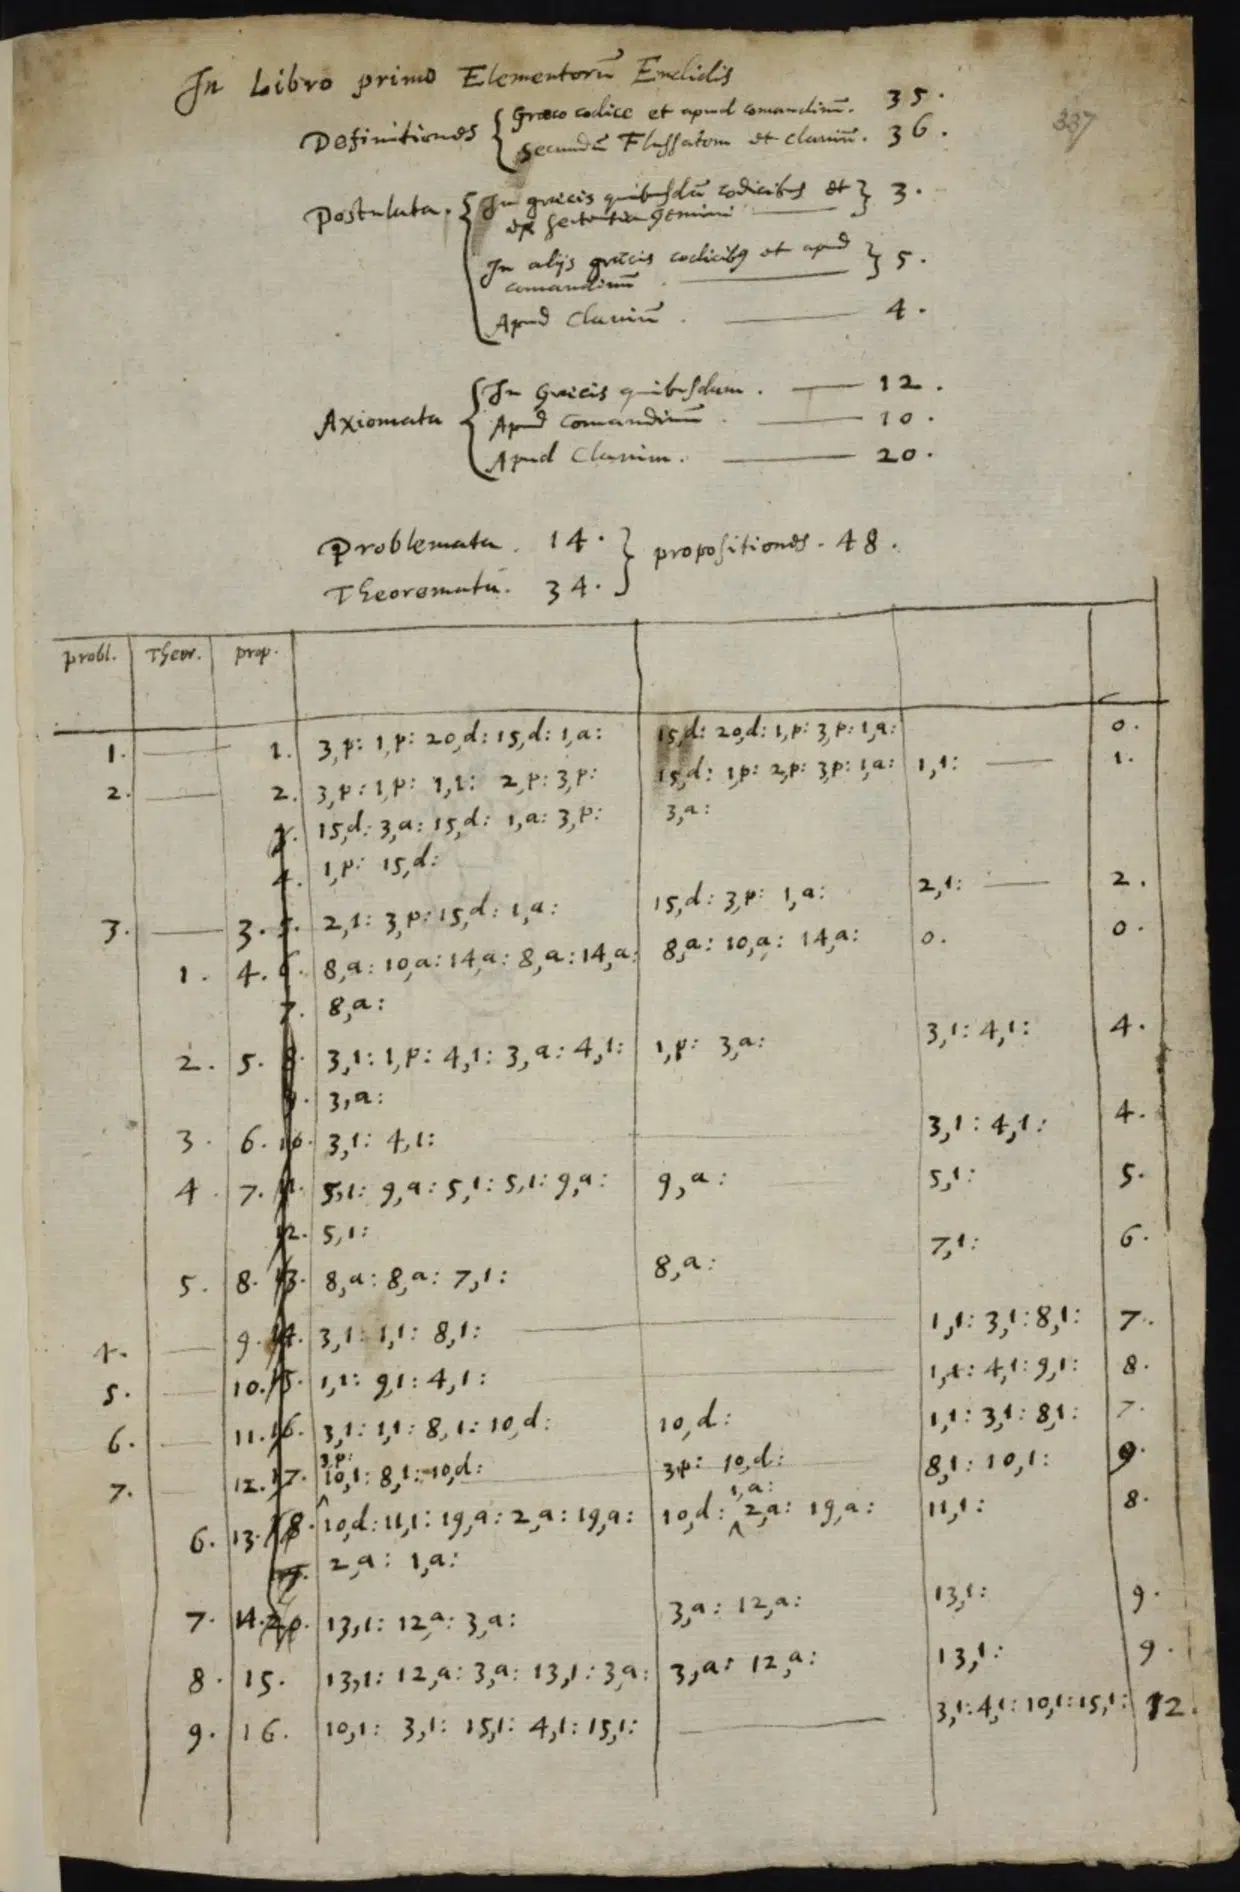 In Libro primo Elementorũ Euclidis
337
Definitiones { Græco codice et apud comandinũ. 35.
secundũ Flussatem et Claviũ. 36.
Postulata. { In græcis quibusdã codicibus et } 3.
ex sententia Gemini
In alijs græcis codicibus et apud } 5.
comandinũ
Apud Claviũ. 4.
Axiomata { In Græcis quibusdam. 12.
Apud Comandinũ. 10.
Apud Clavium. 20.
Problemata. 14. } propositiones. 48.
Theoremata. 34.
probl. Theor. prop.
1. — 1. 3,p: 1,p: 20,d: 15,d: 1,a: 15,d: 20,d: 1,p: 3,p: 1,a: 0.
2. — 2. 3,p: 1,p: 1,1: 2,p: 3,p: 15,d: 1,p: 2,p: 3,p: 1,a: 1,1: — 1.
3. 15,d: 3,a: 15,d: 1,a: 3,p: 3,a:
4. 1,p: 15,d:
3. — 3. 5. 2,1: 3,p: 15,d: 1,a: 15,d: 3,p: 1,a: 2,1: — 2.
1. 4. 6. 8,a: 10,a: 14,a: 8,a: 14,a: 8,a: 10,a: 14,a: 0. 0.
7. 8,a:
2. 5. 8. 3,1: 1,p: 4,1: 3,a: 4,1: 1,p: 3,a: 3,1: 4,1: 4.
9. 3,a:
3. 6. 10. 3,1: 4,1: — 3,1: 4,1: 4.
4. 7. 11. 5,1: 9,a: 5,1: 5,1: 9,a: 9,a: 5,1: 5.
12. 5,1:
5. 8. 13. 8,a: 8,a: 7,1: 8,a: 7,1: 6.
4. — 9. 14. 3,1: 1,1: 8,1: — 1,1: 3,1: 8,1: 7.
5. — 10. 15. 1,1: 9,1: 4,1: — 1,1: 4,1: 9,1: 8.
6. — 11. 16. 3,1: 1,1: 8,1: 10,d: 10,d: 1,1: 3,1: 8,1: 7.
3,p:
7. — 12. 17. 10,1: 8,1: 10,d: 3p: 10,d: 8,1: 10,1: 9.
1,a:
6. 13. 18. 10,d: 11,1: 19,a: 2,a: 19,a: 10,d: ^ 2,a: 19,a: 11,1: 8.
19. 2,a: 1,a:
7. 14. 20. 13,1: 12,a: 3,a: 3,a: 12,a: 13,1: 9.
8. 15. 13,1: 12,a: 3,a: 13,1: 3,a: 3,a: 12,a: 13,1: 9.
9. 16. 10,1: 3,1: 15,1: 4,1: 15,1: — 3,1: 4,1: 10,1: 15,1: 12.